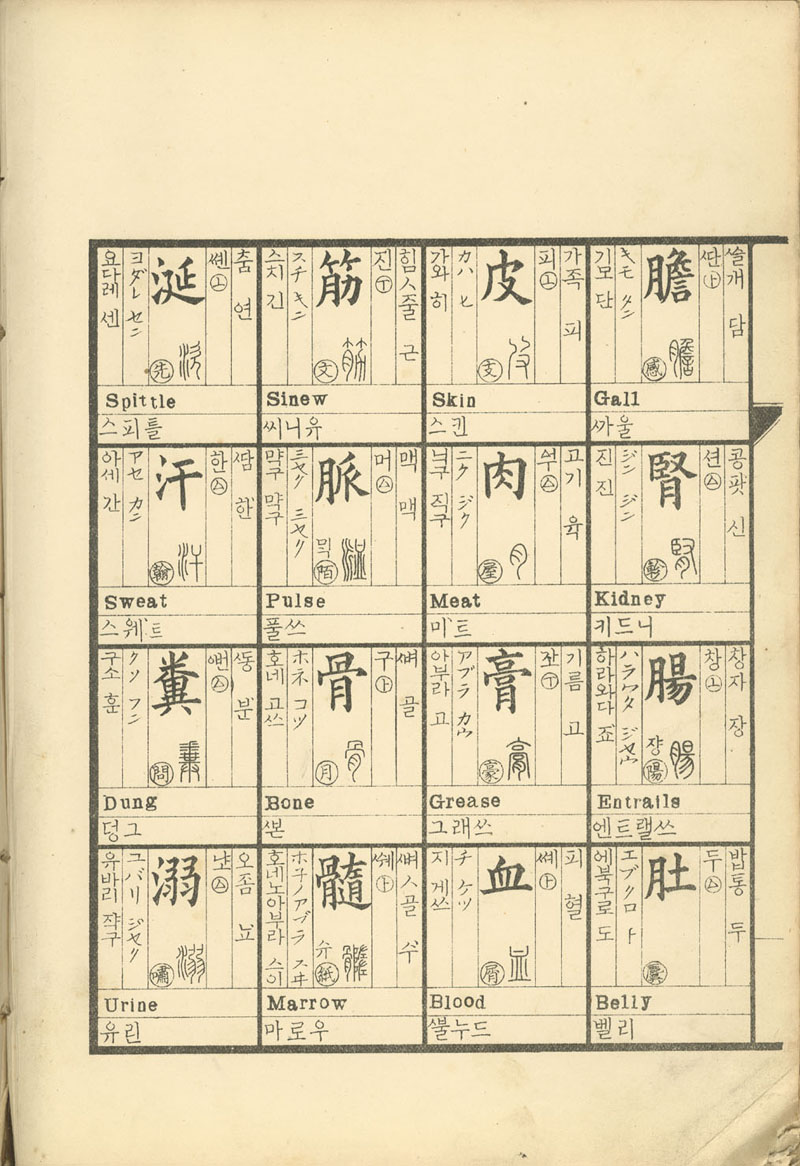 쓸개 담
膽
感
キモ タン
기모 단
Gall
까울
가족 피
피
皮
支
カハ ヒ
가와 히
Skin
스킨
힘ㅅ줄 근
진
筋
文
スヂ キン
스치 긴
Sinew
씨니유
춤 연
涎
先
ヨダレ セン
요다레 센
Spittle
스피틀
콩팟 신
션
腎
軫
ジン ジン
진 진
Kidney
키드니
고기 육
肉
屋
ニク ジク
늬구 직구
Meat
미트
맥 맥
머
脈
믹
陌
ミャク ミャク
먁구 먁구
Pulse
풀쓰
땀 한
한
汗
翰
アセ カン
아세 간
Sweat
스웨트
창자 장
창
腸
쟝
陽
ハラワタ ジャウ
하라와다 죠
Entrails
엔트랠쓰
기름 고
膏
豪
アブラ カウ
아부라 고
Grease
그래쓰
뼈 골
구
骨
月
ホネ コツ
호네 고쓰
Bone
본
똥 분
糞
問
クソ フン
구소 훈
Dung
덩그
밥통 두
두
肚
麌
エブクロ ト
에북구로 도
Belly
벨리
피 혈
血
屑
チ ケツ
지 게쓰
Blood
뿔누드
뼈ㅅ골 슈
髓
슈
紙
ホネノアブラ スヰ
호네노아부라 스이
Marrow
마로우
오좀 뇨
냐
溺
嘯
ユバリ ジャク
유바리 쟉구
Urine
유린